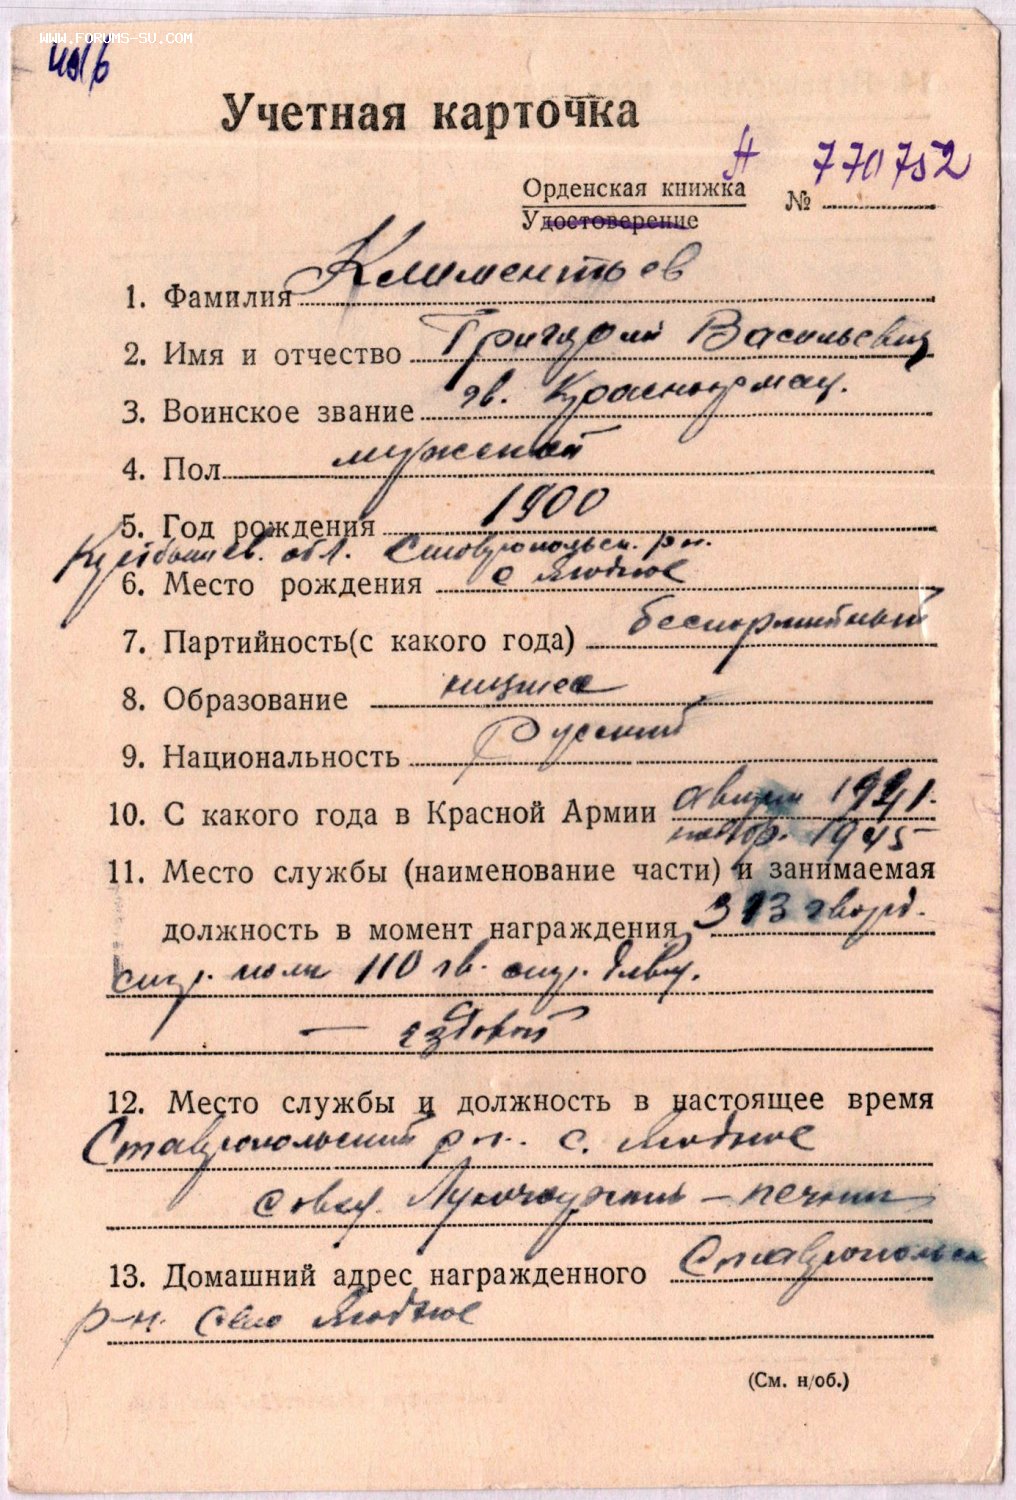 WWW.FORUMS-SU.COM
Учетная карточка
Н 770752
Орденская книжка №
Удостоверение
Климентьев
1. Фамилия
Григорий Васильевич
2. Имя и отчество
гв. Красноармеец.
3. Воинское звание
мужской
4. Пол
1900
5. Год рождения
Куйбышев. обл. Ставропольск. р-н.
6. Место рождения с Ягодное
7. Партийность(с какого года) беспартийный
8. Образование низшее
9. Национальность Русский
10. С какого года в Красной Армии август 1941.
1945
11. Место службы (наименование части) и занимаемая
должность в момент награждения 313 гвард.
стр. полк 110 гв. стр. дивиз.
— ездовой
12. Место службы и должность в настоящее время
Ставропольский р-н. с. Ягодное
– печник
13. Домашний адрес награжденного Ставропольск
р-н. село Ягодное
(См. н/об.)